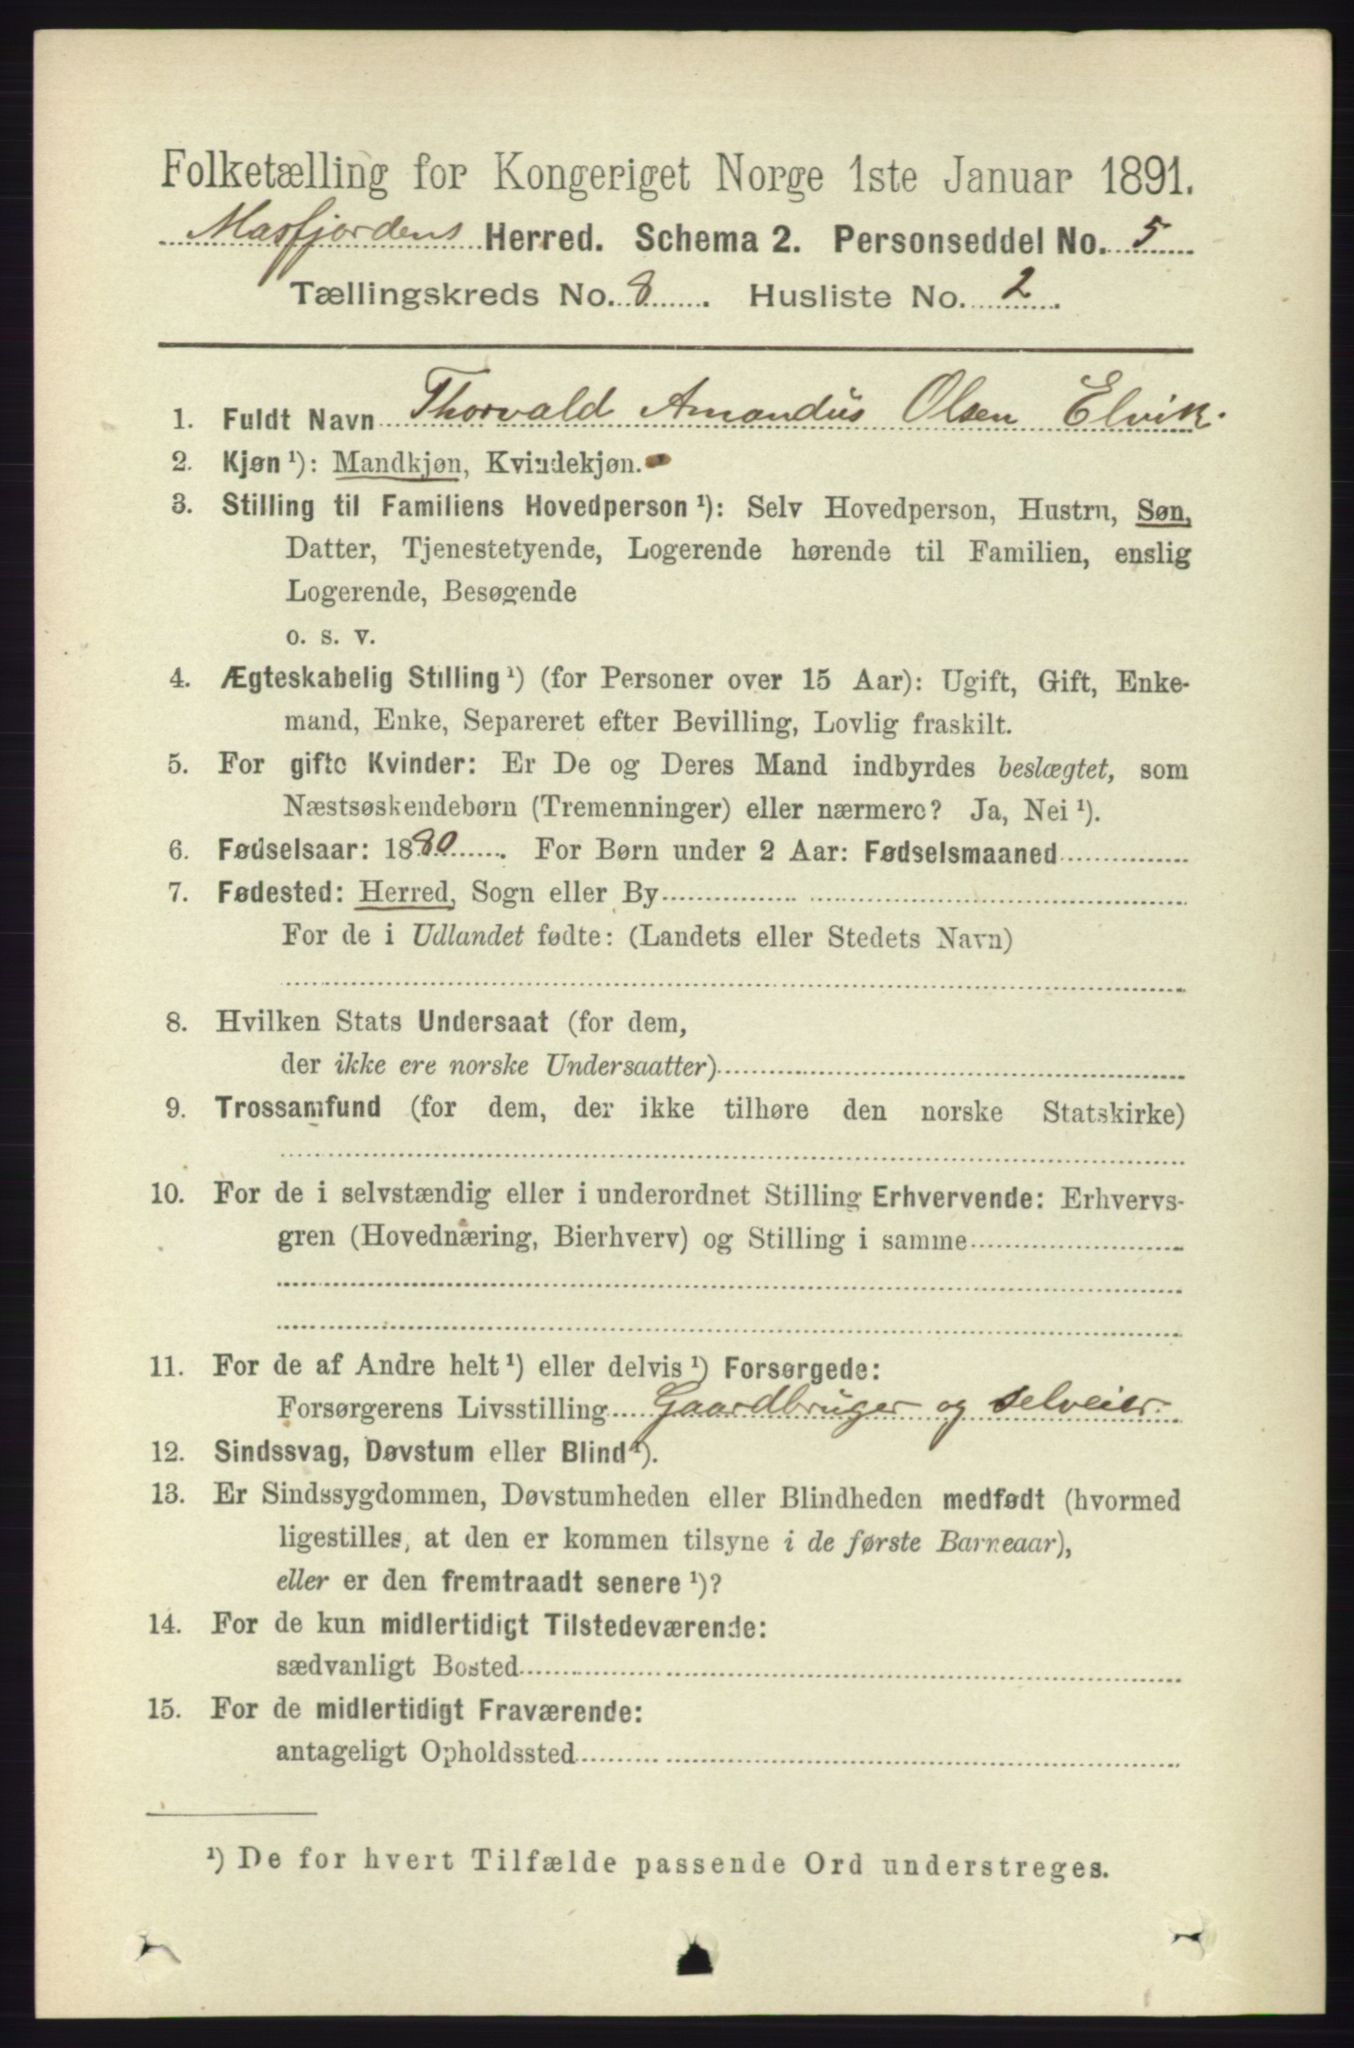 Folketælling for Kongeriget Norge 1ste Januar 1891.
Masfjordens Herred. Schema 2. Personseddel No. 5
Tællingskreds No. 8. Husliste No. 2.
1. Fuldt Navn Thorvald Amandus Olsen Elvik.
2. Kjøn ¹): Mandkjøn, Kvindekjøn.
3. Stilling til Familiens Hovedperson ¹): Selv Hovedperson, Hustru, Søn,
Datter, Tjenestetyende, Logerende hørende til Familien, enslig
Logerende, Besøgende
o. s. v.
4. Ægteskabelig Stilling ¹) (for Personer over 15 Aar): Ugift, Gift, Enke-
mand, Enke, Separeret efter Bevilling, Lovlig fraskilt.
5. For gifte Kvinder: Er De og Deres Mand indbyrdes beslægtet, som
Næstsøskendebørn (Tremenninger) eller nærmere? Ja, Nei ¹).
6. Fødselsaar: 1880. For Børn under 2 Aar: Fødselsmaaned
7. Fødested: Herred, Sogn eller By
For de i Udlandet fødte: (Landets eller Stedets Navn)
8. Hvilken Stats Undersaat (for dem,
der ikke ere norske Undersaatter)
9. Trossamfund (for dem, der ikke tilhøre den norske Statskirke)
10. For de i selvstændig eller i underordnet Stilling Erhvervende: Erhvervs-
gren (Hovednæring, Bierhverv) og Stilling i samme
11. For de af Andre helt ¹) eller delvis ¹) Forsørgede:
Forsørgerens Livsstilling Gaardbruger og selveier
12. Sindssvag, Døvstum eller Blind ¹).
13. Er Sindssygdommen, Døvstumheden eller Blindheden medfødt (hvormed
ligestilles, at den er kommen tilsyne i de første Barneaar),
eller er den fremtraadt senere ¹)?
14. For de kun midlertidigt Tilstedeværende:
sædvanligt Bosted
15. For de midlertidigt Fraværende:
antageligt Opholdssted
¹) De for hvert Tilfælde passende Ord understreges.